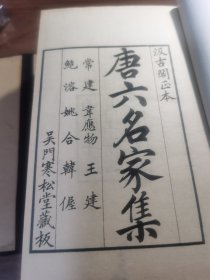 汲古閣正本
唐六名家集
常建 韋應物 王建
鮑溶 姚合 韓偓
吳門寒松堂藏板